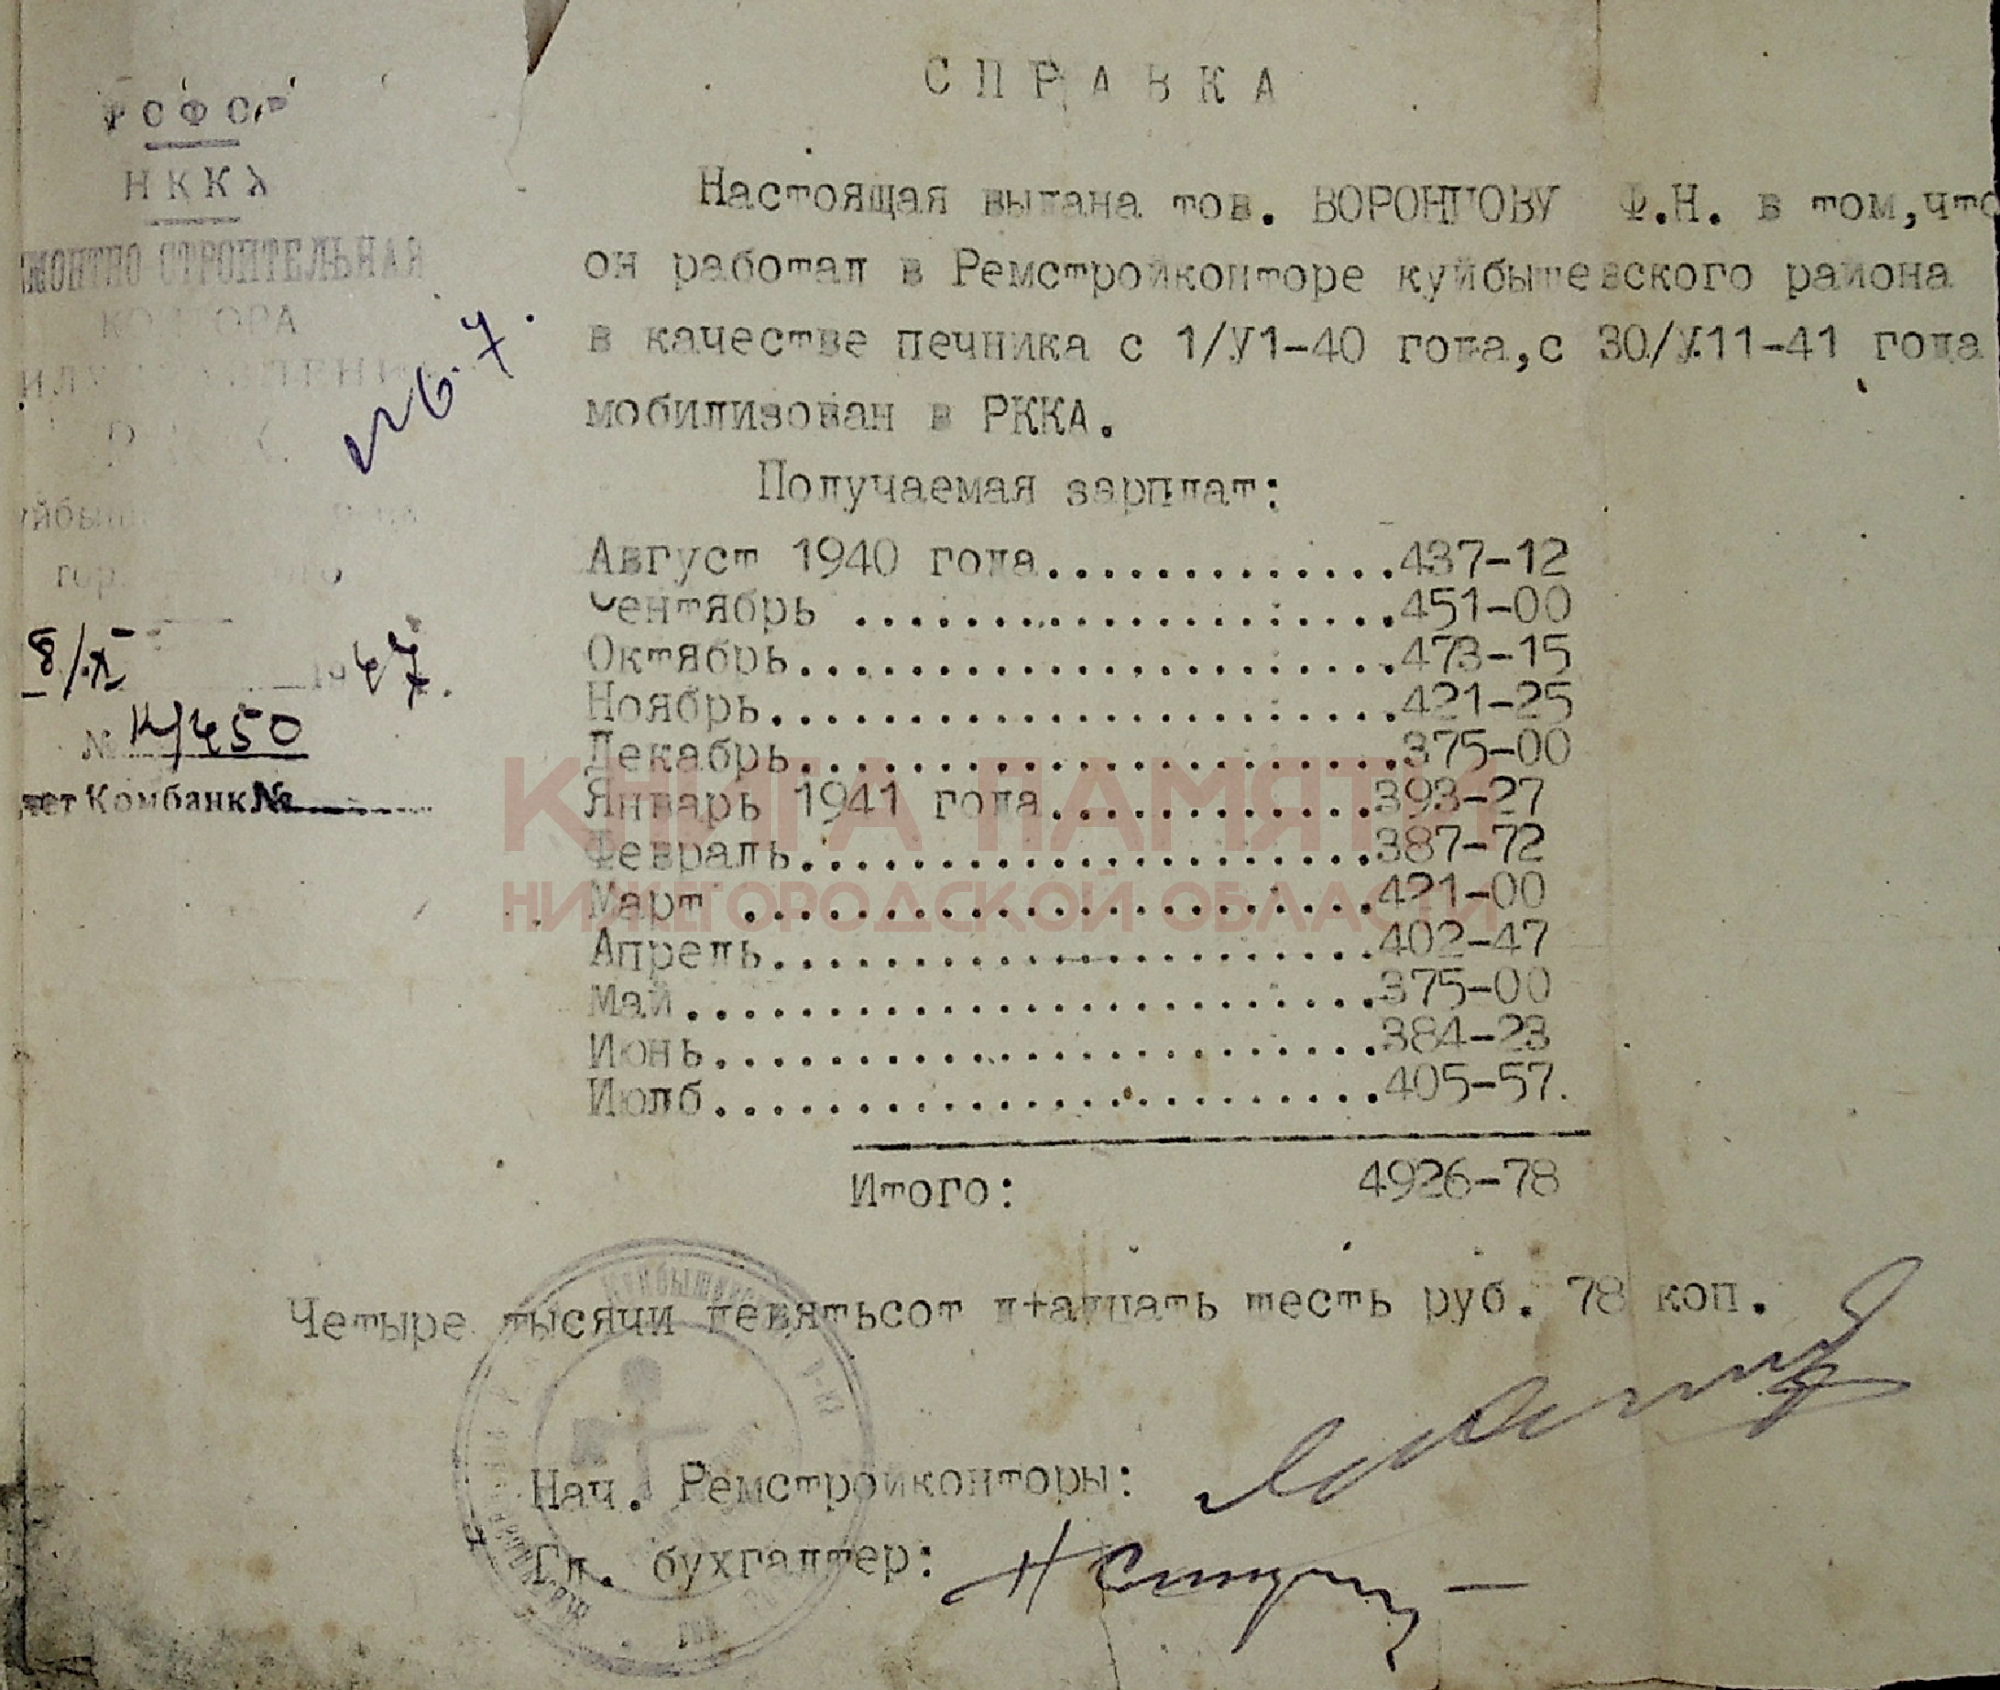 РСФСР
НККХ
РЕМОНТНО-СТРОИТЕЛЬНАЯ
КОНТОРА
№ 6.7.
гор.
8/X 1947.
№ К/450
счет Комбанк №
СПРАВКА
Настоящая выдана тов. ВОРОНЦОВУ Ф.Н. в том,что
он работал в Ремстройконторе куйбышевского района
в качестве печника с 1/У1-40 года,с 30/У11-41 года
мобилизован в РККА.
Получаемая зарплат:
Август 1940 года.............437-12
Сентябрь ....................451-00
Октябрь......................473-15
Ноябрь.......................421-25
Декабрь......................375-00
Январь 1941 года............393-27
Февраль.....................387-72
Март .......................421-00
Апрель......................402-47
Май .........................375-00
Июнь........................384-23
Июлб........................405-57.
Итого: 4926-78
Четыре тысячи девятьсот д+адцать шесть руб. 78 коп.
Нач. Ремстройконторы:
Гл. бухгалтер:
КНИГА ПАМЯТИ
НИЖЕГОРОДСКОЙ ОБЛАСТИ